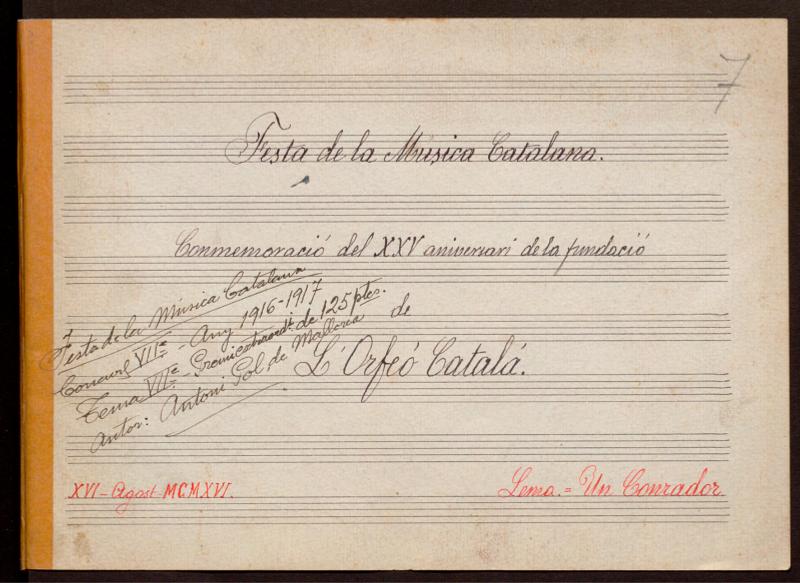 7
Festa de la Música Catalana.
Conmemoració del XXV aniversari de la fundació
de
L'Orfeó Catalá.
Festa de la Música Catalana
Concurs VIIè - Any 1916-1917
Tema VIIè - Premi extraordt. de 125 ptes.
Autor: Antoni Pol, de Mallorca
XVI - Agost - MCMXVI.
Lema. = Un Conrador.